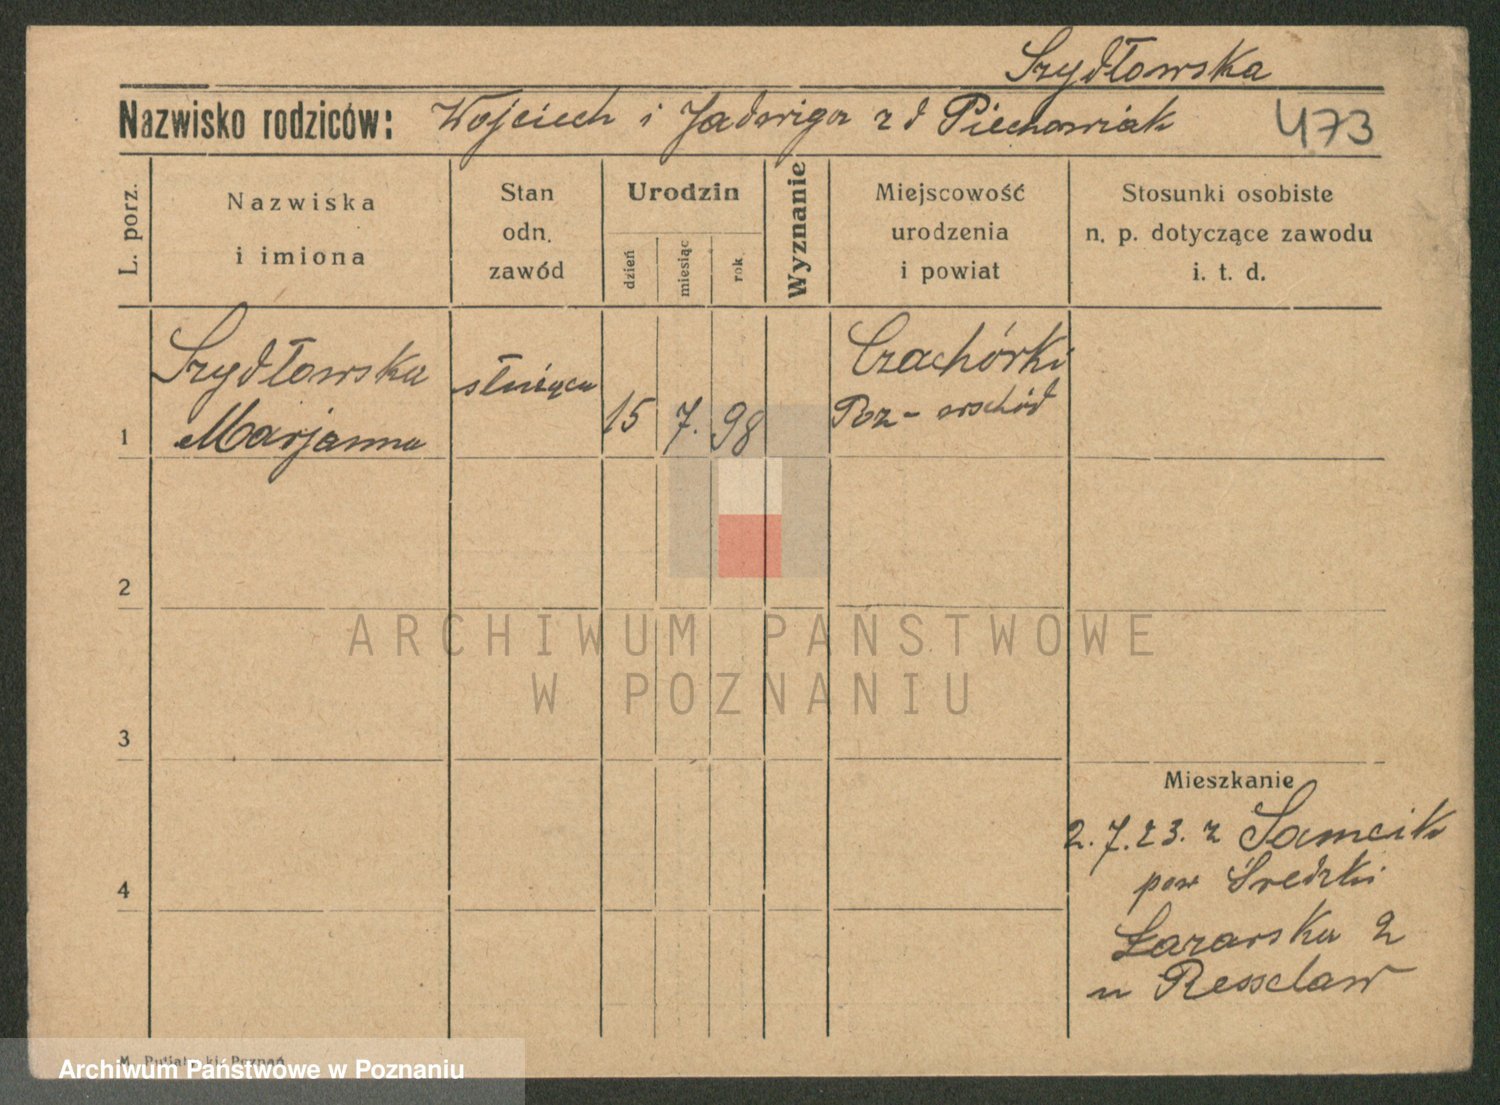 Szydłowska
Nazwisko rodziców: Wojciech i Jadwiga z d Piechowiak 473
L. porz.
Nazwiska
i imiona
Stan
odn.
zawód
Urodzin
dzień
miesiąc
rok.
Wyznanie
Miejscowość
urodzenia
i powiat
Stosunki osobiste
n. p. dotyczące zawodu
i. t. d.
1
Szydłowska
Marjanna
służąca
15 7. 98
Czachórki
Poz - wschód
2
ARCHIWUM PAŃSTWOWE
W POZNANIU
3
Mieszkanie
2.7.23. z
pow Średzki
4
Łazarska 2
u
M. Putiatycki Poznań
Archiwum Państwowe w Poznaniu